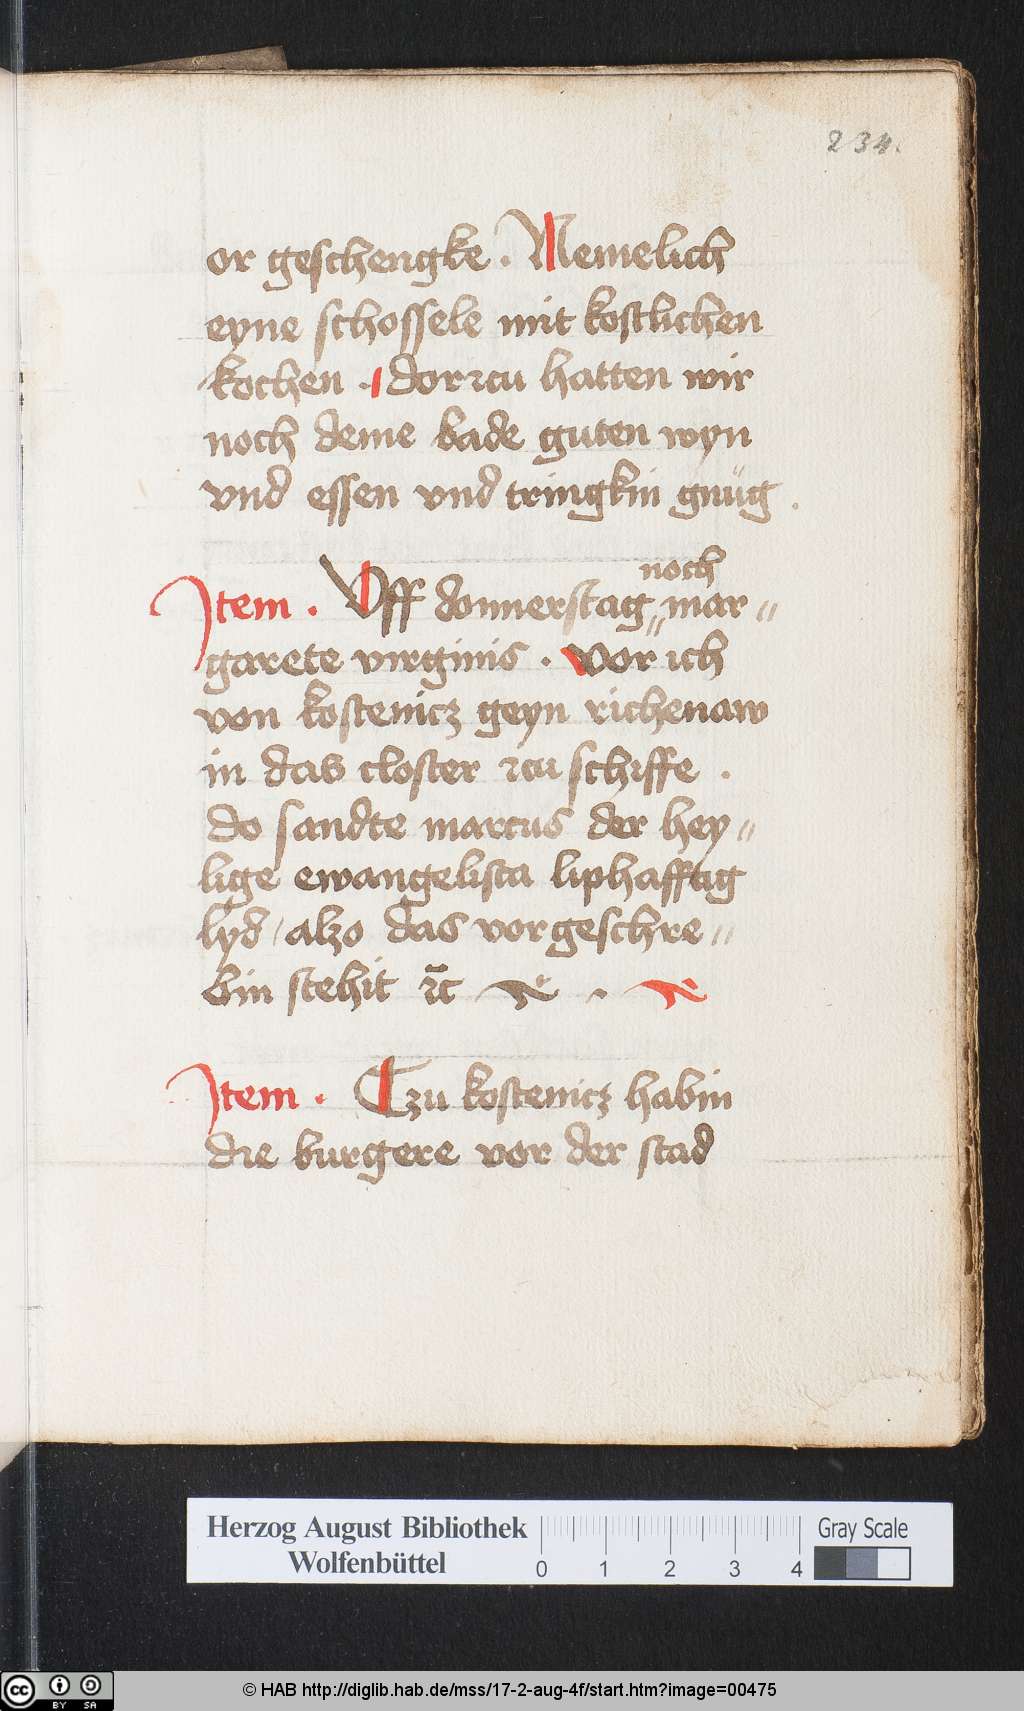 234.
or geschengke . Nemelich
eyne schossele mit kostlichen
kochen . dorzcu hatten wir
noch deme bade guten wyn
vnd essen vnd tringkin gnüg .
noch
Item . Vff donnerstag〃mar〃
garete virginis . vor ich
von kostenicz geyn richenaw
in das closter zcu schiffe .
do sandte marcus der hey〃
lige ewangelista liphafftig
lyd / alzo das vorgeschre〃
bin stehit ꝛc̄
Item . Czu kostenicz habin
die burgere vor der stad
Herzog August Bibliothek
Wolfenbüttel
0 1 2 3 4
Gray Scale
cc BY SA
© HAB http://diglib.hab.de/mss/17-2-aug-4f/start.htm?image=00475